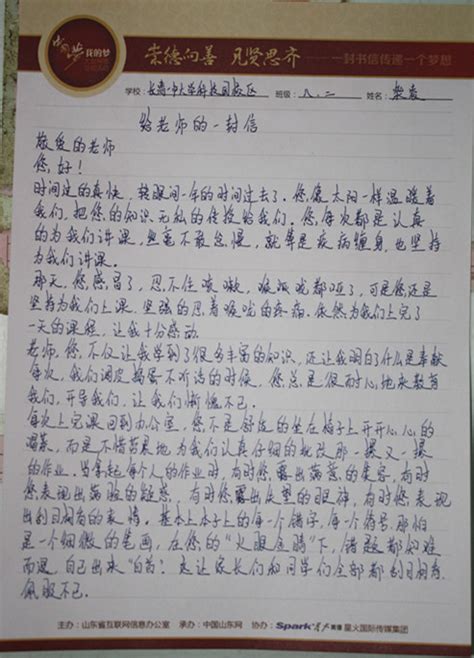 中国梦 我的梦
崇德向善 见贤思齐 —— 一封书信传递一个梦想
学校：长清中大学科技园校区 班级：八.二 姓名：
给老师的一封信
敬爱的老师
您好！
时间过的真快，转眼间一年的时间过去了。您像太阳一样温暖着
我们，把您的知识无私的传授给我们。您，每次都是认真
的为我们讲课，丝毫不敢怠慢，就算是疾病缠身，也坚持
为我们讲课。
那天，您感冒了，忍不住咳嗽，喉咙都哑了，可是您还是
坚持为我们上课，坚强的忍着喉咙的疼痛。依然为我们上完了
一天的课程，让我十分感动
老师，您，不仅让我学到了很多丰富的知识，还让我明白了什么是奉献
每次，我们调皮捣蛋不听话的时候，您，总是很耐心地来教育
我们，开导我们，让我们惭愧不已。
每次上完课回到办公室，您，不是舒服的坐在椅子上开开心心的
而是不惜劳累地为我们认真仔细的批改那一摞又一摞
的作业，当拿起每个人的作业时，有时您，露出满意的笑容，有时
您表现出满脸的疑惑，有时您露出失望的眼神，有时您，表现
出刮目相看的表情。基本上本子上的每一个错字，每一个符号，那怕
是一个细微的笔画，在您的“火眼金睛”下，错题都知难
而退，自己出来“自首”，这让家长们和同学们全部都刮目相看，
佩服不已。
主办：山东省互联网信息办公室 承办：中国山东网 协办：Spark 星火国际传媒集团